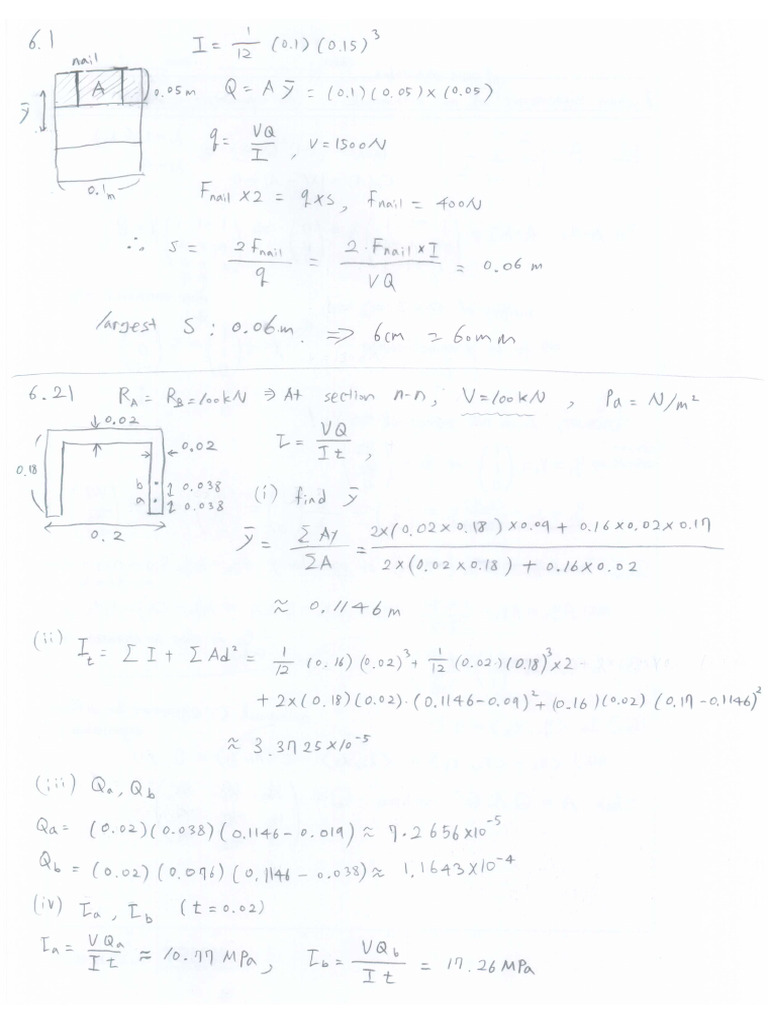 6.1
nail
A
0.05m
ȳ
0.1m
I = 1/12 (0.1)(0.15)³
Q = A ȳ = (0.1)(0.05)×(0.05)
q = VQ/I , V=1500N
Fnail ×2 = q×s, Fnail = 400N
∴ s = 2Fnail/q = 2·Fnail×I/VQ = 0.06 m
largest S : 0.06m. ⇒ 6cm = 60mm
6.21 R_A = R_B = 100kN ⇒ At section n-n, V=100kN , Pa = N/m²
0.02
0.02
0.18
b 0.038
a 0.038
0.2
τ = VQ/It ,
(i) find ȳ
ȳ = ΣAy/ΣA = 2×(0.02×0.18)×0.09 + 0.16×0.02×0.17 / 2×(0.02×0.18) + 0.16×0.02
≈ 0.1146m
(ii) I_t = ΣI + ΣAd² = 1/12 (0.16)(0.02)³ + 1/12 (0.02)(0.18)³×2
+ 2×(0.18)(0.02)·(0.1146-0.09)² + (0.16)(0.02)(0.17-0.1146)²
≈ 3.3725×10⁻⁵
(iii) Qa, Qb
Qa = (0.02)(0.038)(0.1146-0.019) ≈ 7.2656×10⁻⁵
Qb = (0.02)(0.076)(0.1146-0.038) ≈ 1.1643×10⁻⁴
(iv) τa, τb (t=0.02)
τa = VQa/It ≈ 10.77 MPa, τb = VQb/It = 17.26MPa